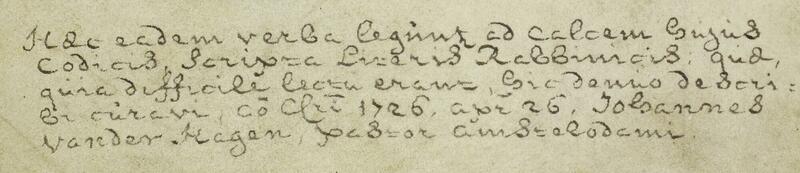 Hæc eadem verba legunt ad calcem hujus
Codicis, Scripta Literis Rabbinicis: quæ,
quia difficilè lectu erant, hic denuo descri=
bi curavi, aō Chrī 1726. apr̄ 26. Johannes
vander Hagen, pastor Amstelodami.